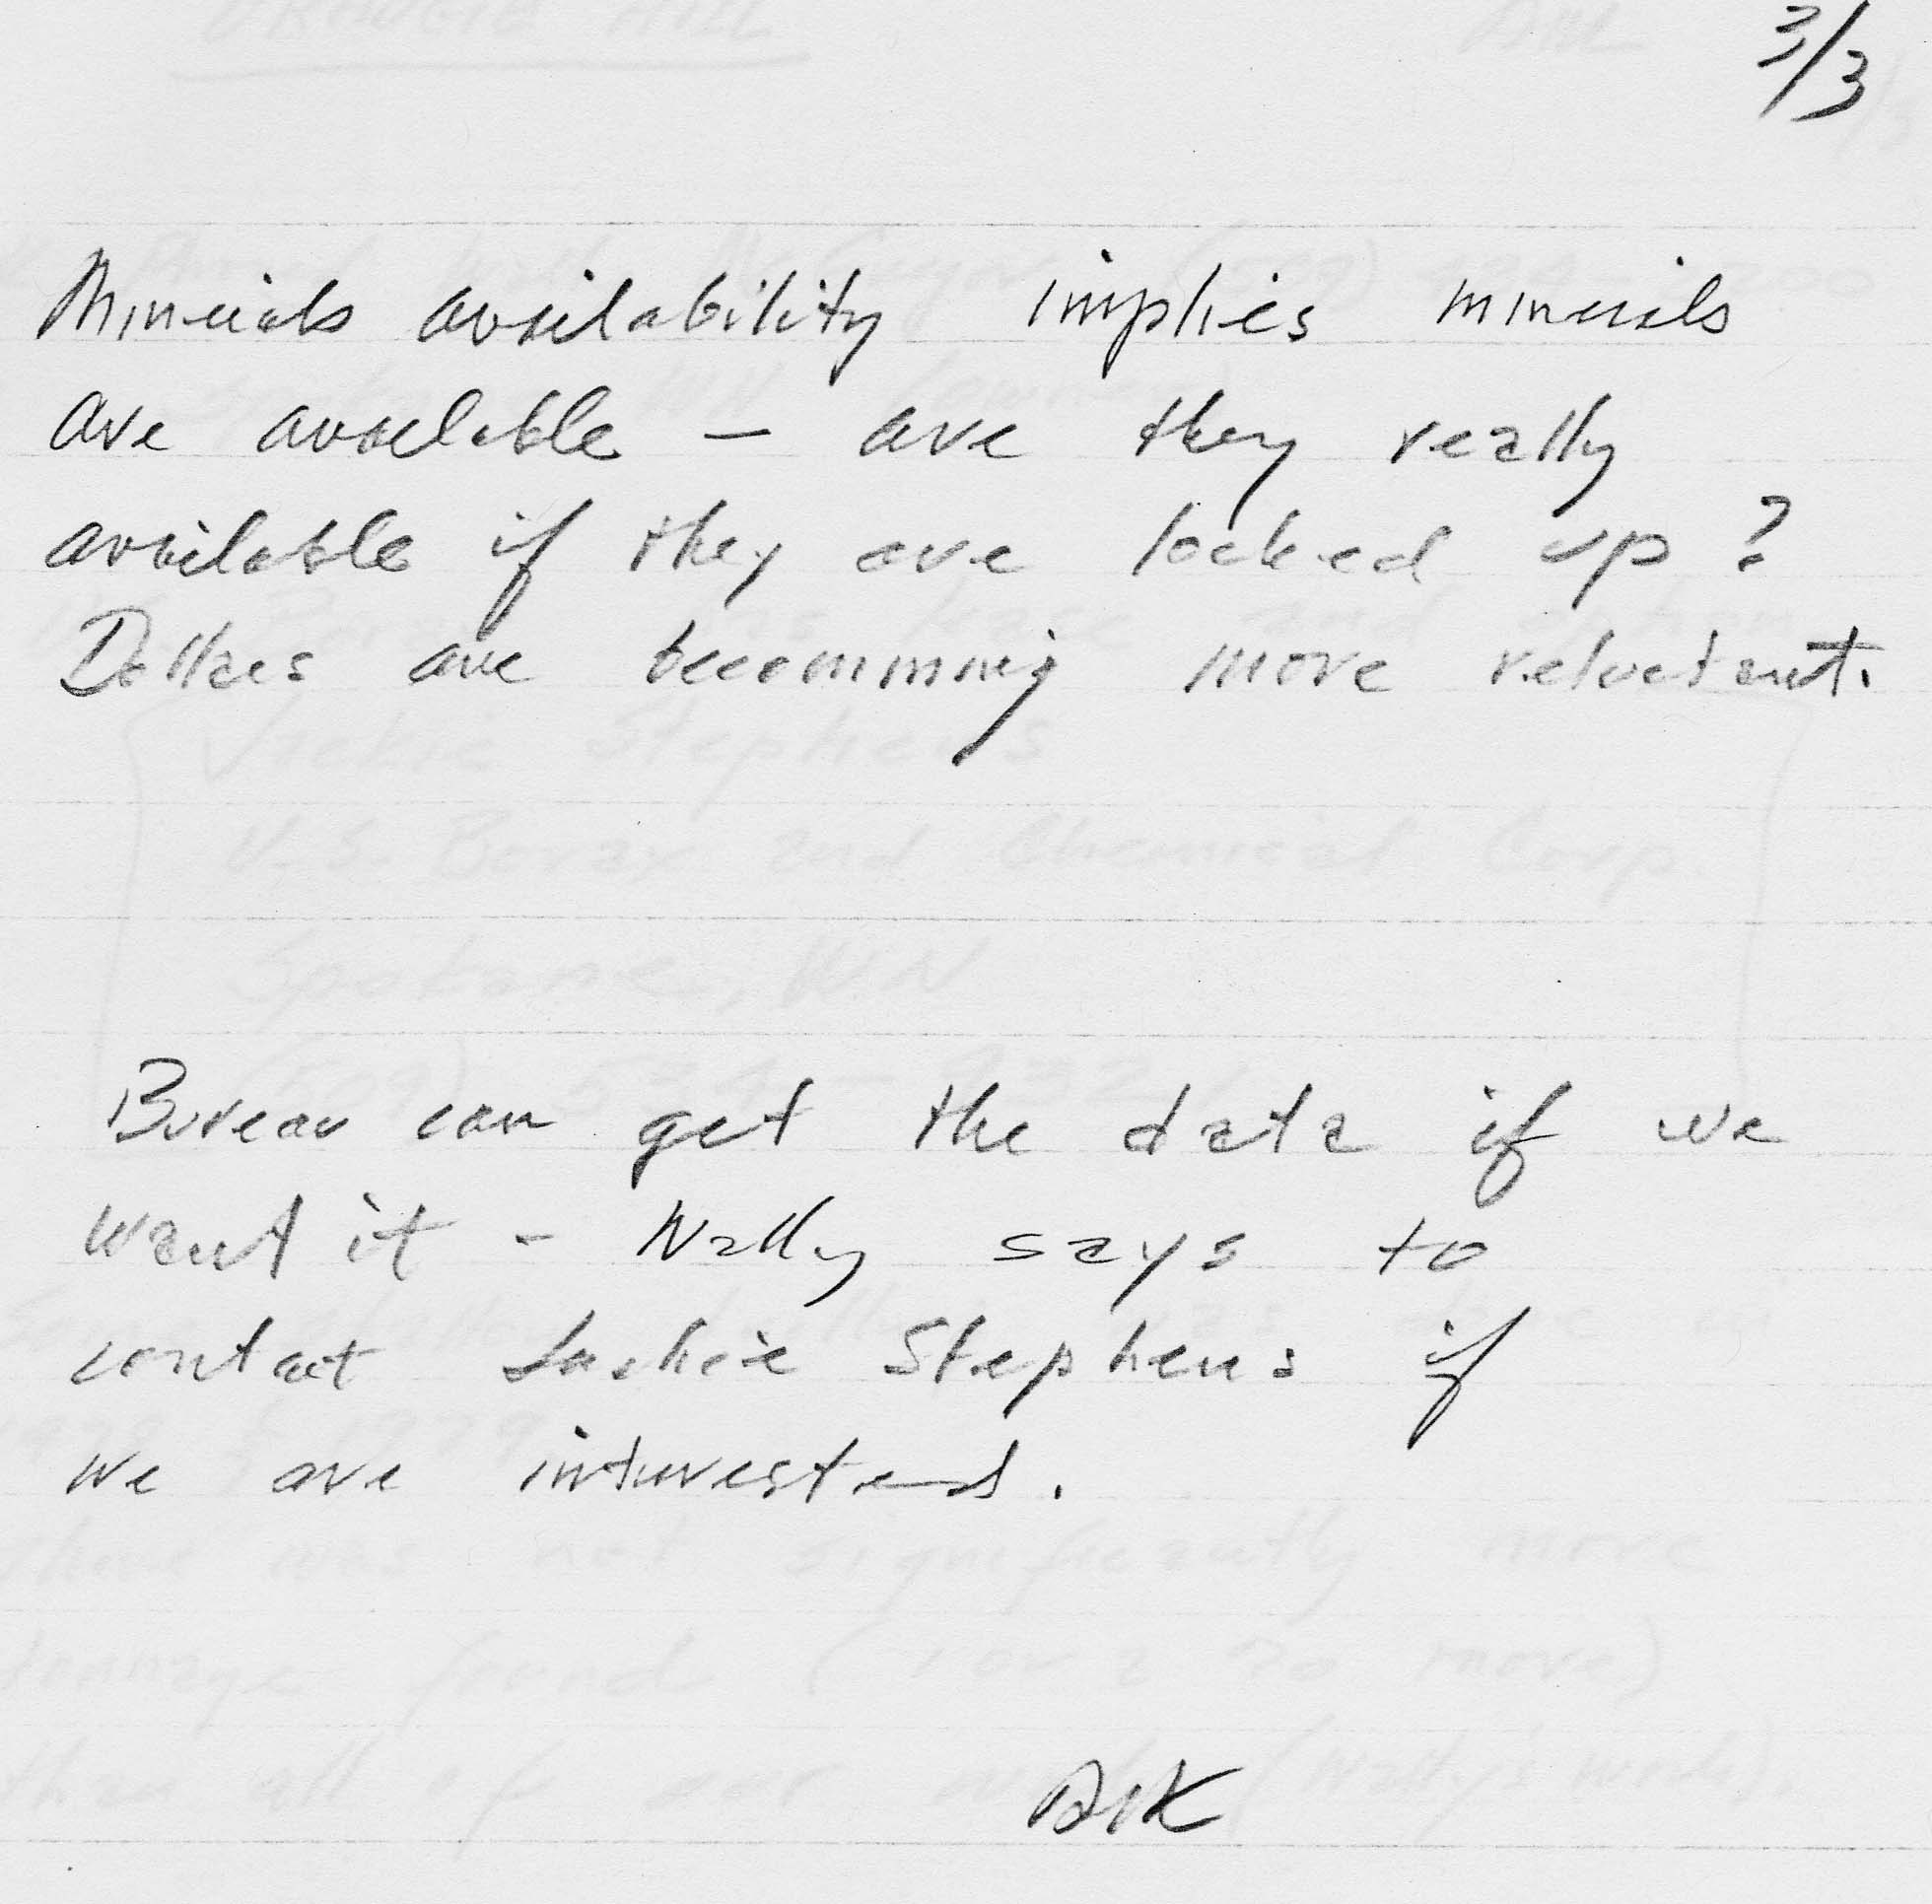 3/3
Minerals availability implies minerals
are available — are they really
available if they are locked up?
Dollars are becomming more reluctant.
Bureau can get the data if we
want it - Wally says to
contact Jackie Stephens if
we are interested.